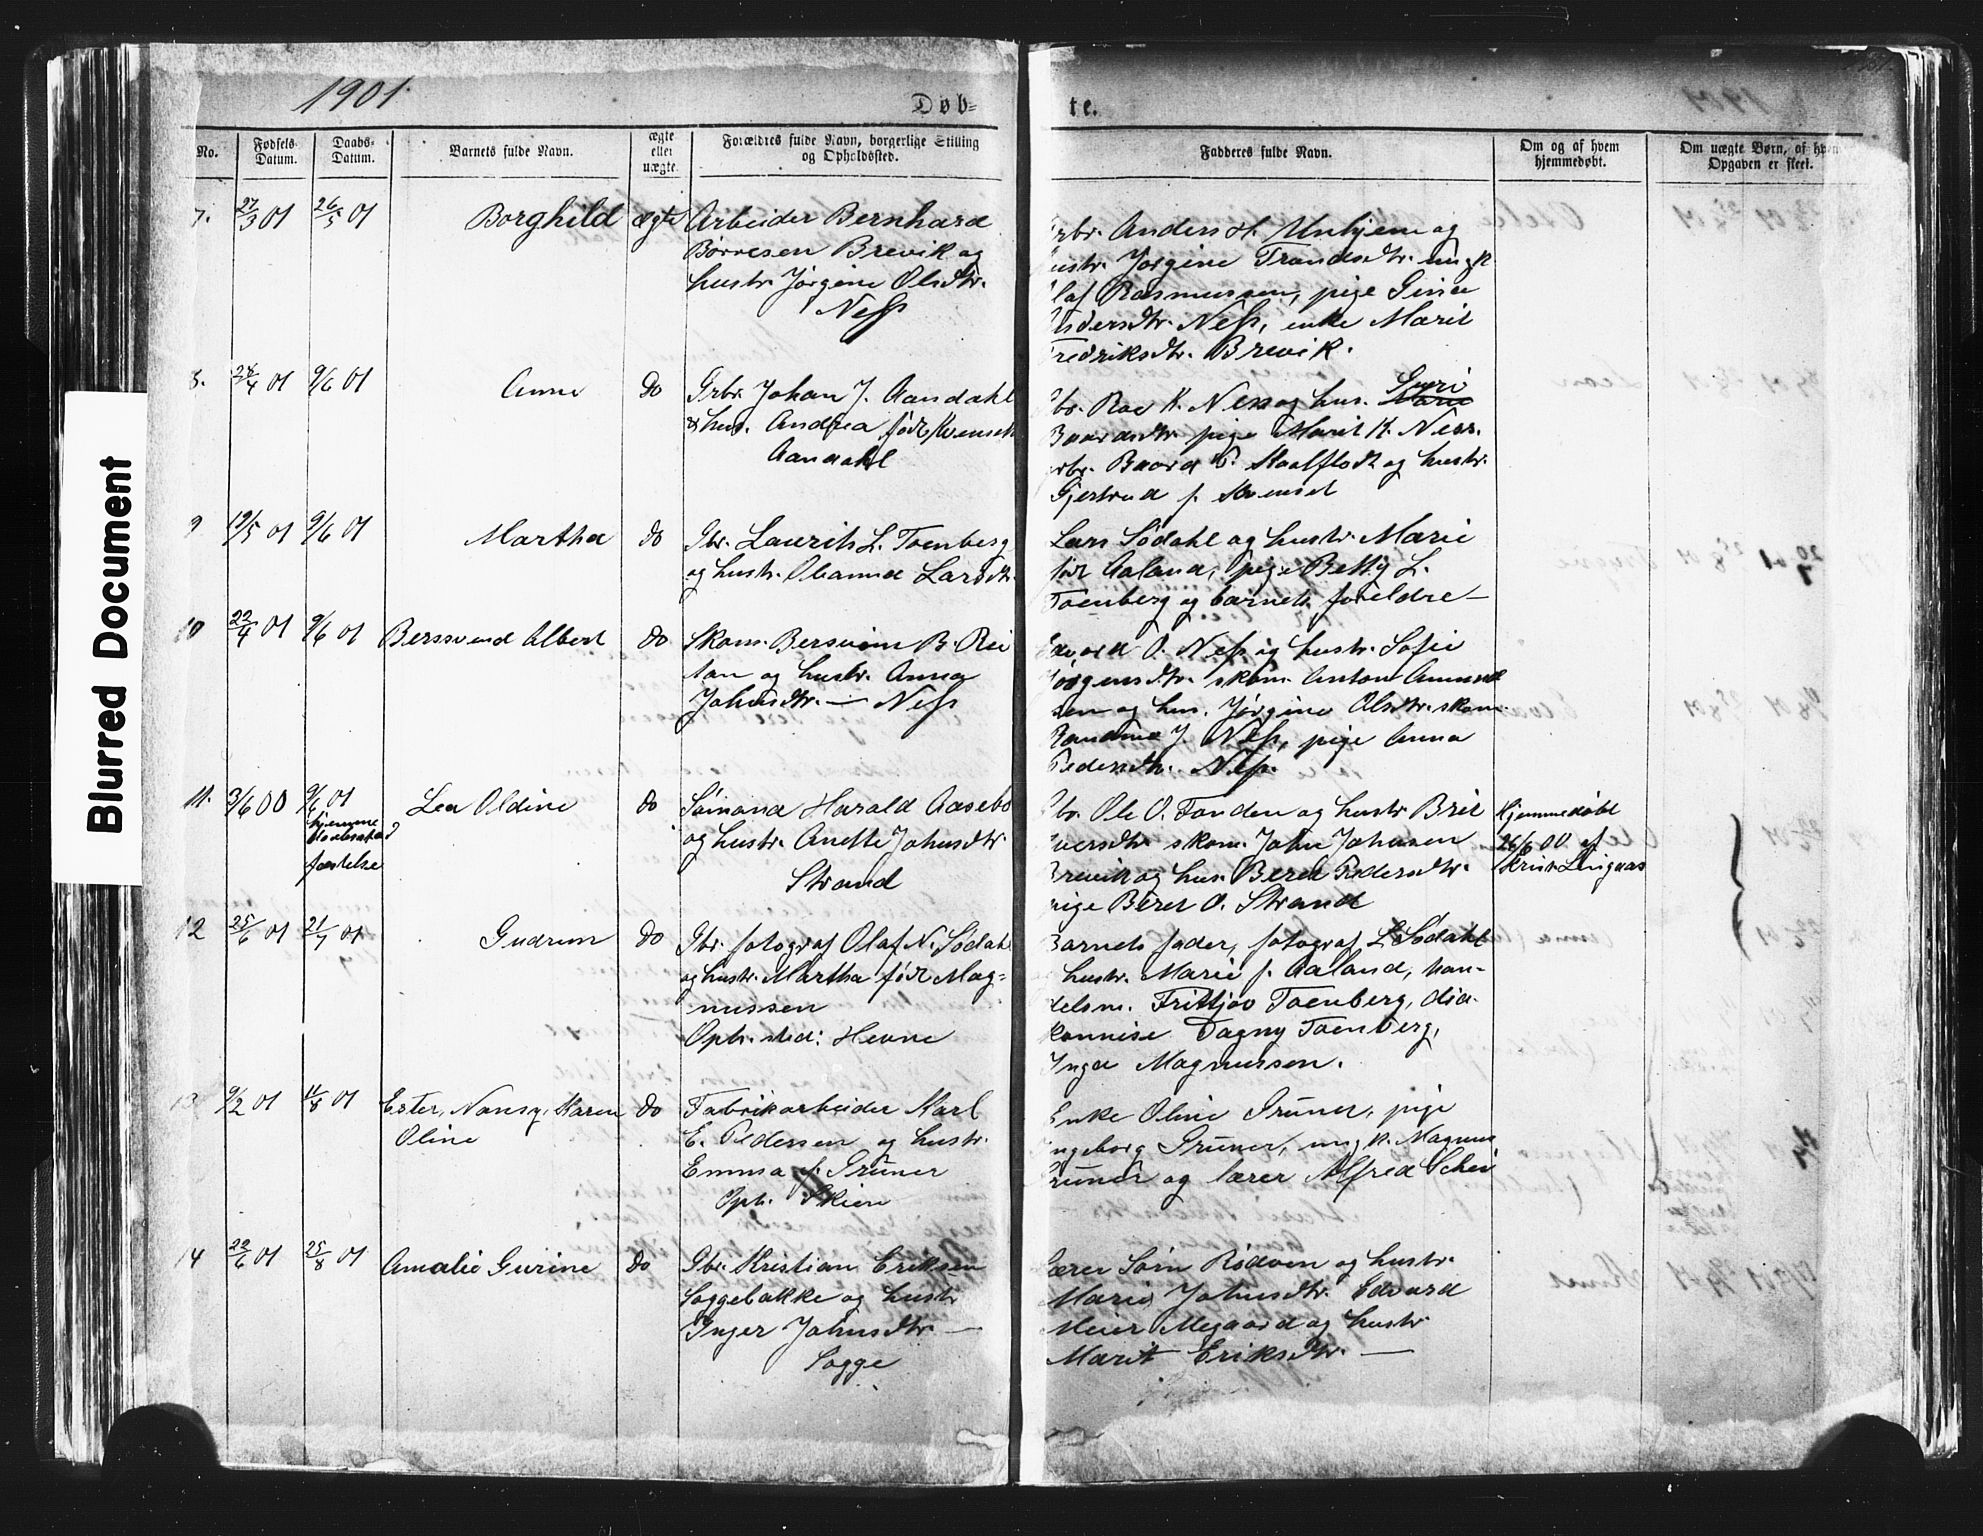 Blurred Document
1901.
Døb-
te.
No.
Fødsels-
Datum.
Daabs-
Datum.
Barnets fulde Navn.
ægte
eller
uægte.
Forældres fulde Navn, borgerlige Stilling
og Opholdssted.
Fadderes fulde Navn.
Om og af hvem
hjemmedøbt.
Om uægte Børn, af hvem
Opgaven er skeet.
7. 27/3 01 26/5 01 Borghild ægte Arbeider Bernhard
Børresen Brevik og
hustr. Jørgine Olsdtr.
Ness
Anders H. Unhjem og
Jørgine Trondsdtr. ungk
Olaf Rasmussen, pige Gina
Ness, enke Marit
Fredriksdtr. Brevik.
8. 28/4 01 9/6 01 Anne do Grbr. Johan J. Aandahl
& hus. Andrea født Kvenset
Aandahl
Roe K. Ness og hus. Guri
Baardsdtr. pige Marit K. Ness.
Baard P. Skalflodt og hustr.
Gjertrud f. Kvenset
9 19/5 01 9/6 01 Martha do Gbr. Laurits L. Toenberg
og hustr. Obanna Larsdtr.
Lars Sødahl og hustr. Marie
født Aaland, pige Betty L.
Toenberg og barnets foreldre —
10 22/4 01 9/6 01 Berssvend Albert do Skom. Bersvein B. Rei
tan og hustr. Anna
Johnsdtr. — Ness
Edvard O. Ness og hustr. Sofie
Jørgensdtr. skom. Anton Amund
sen og hus. Jørgine Olsdtr. skom.
J. Ness, pige Anna
Pedersdtr. Ness.
11. 3/6 00 9/6 01
hjemme
daabsstad
fæstelse
Lea Oldine do Sømand Harald Aasebø
og hustr. Anette Johnsdtr.
Strand
Gbr. Ole O. Fonden og hustr. Brit
Iversdtr. skom. John Johnsen
Brevik og hus. Beret Pedersdtr.
pige Beret O. Strand
Hjemmedøbt
26/6 00 af
Krist. Lingaas
12 25/6 01 21/7 01 Gudrun do Gbr. fotograf Olaf N. Sødahl
og hustr. Martha født Mag-
nussen
Oph. sted: Hevne
Barnets fader, fotograf L. Sødahl
hustr. Marie f. Aaland, han-
delsm. Frittjov Toenberg, dia-
konnise Dagny Toenberg,
Inga Magnussen.
13 9/2 01 11/8 01 Ester, Nansy, Karen
Oline
do Fabrikarbeider Karl
E. Pedersen og hustr.
Emma f. Grüner
Oph. Skien
Enke Oline Grüner, pige
Ingeborg Grüner, ungk. Magnus
Grüner og lærer Alfred Schei
14 22/6 01 25/8 01 Amalie Gurine do Gbr. Kristian Eriksen
Soggebakke og hustr
Inger Johnsdtr. —
Sogge
Lærer Sørn Rødven og hustr.
Marie Johnsdtr. Edvard
Meier Megaard og hustr
Marit Eriksdtr. —